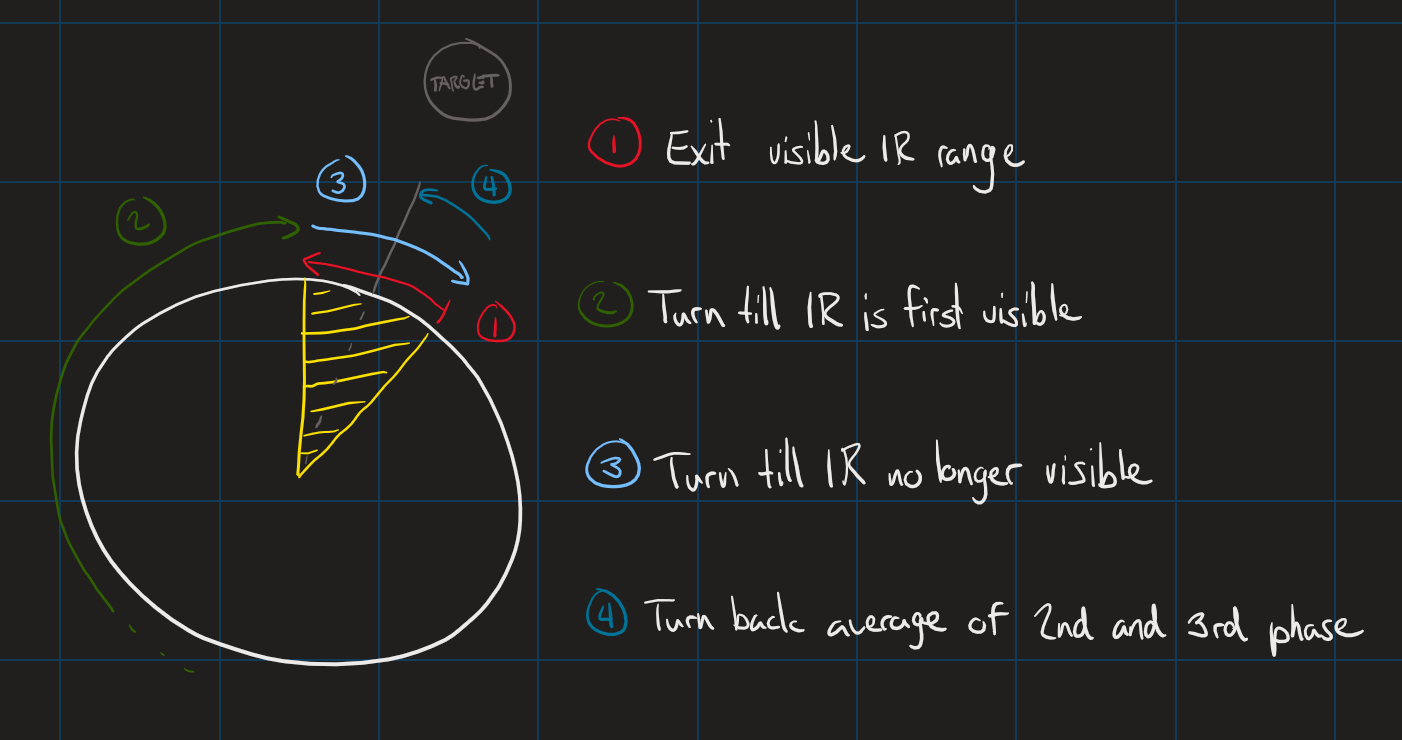 TARGET
3
4
2
1
1 Exit visible IR range
2 Turn till IR is first visible
3 Turn till IR no longer visible
4 Turn back average of 2nd and 3rd phase